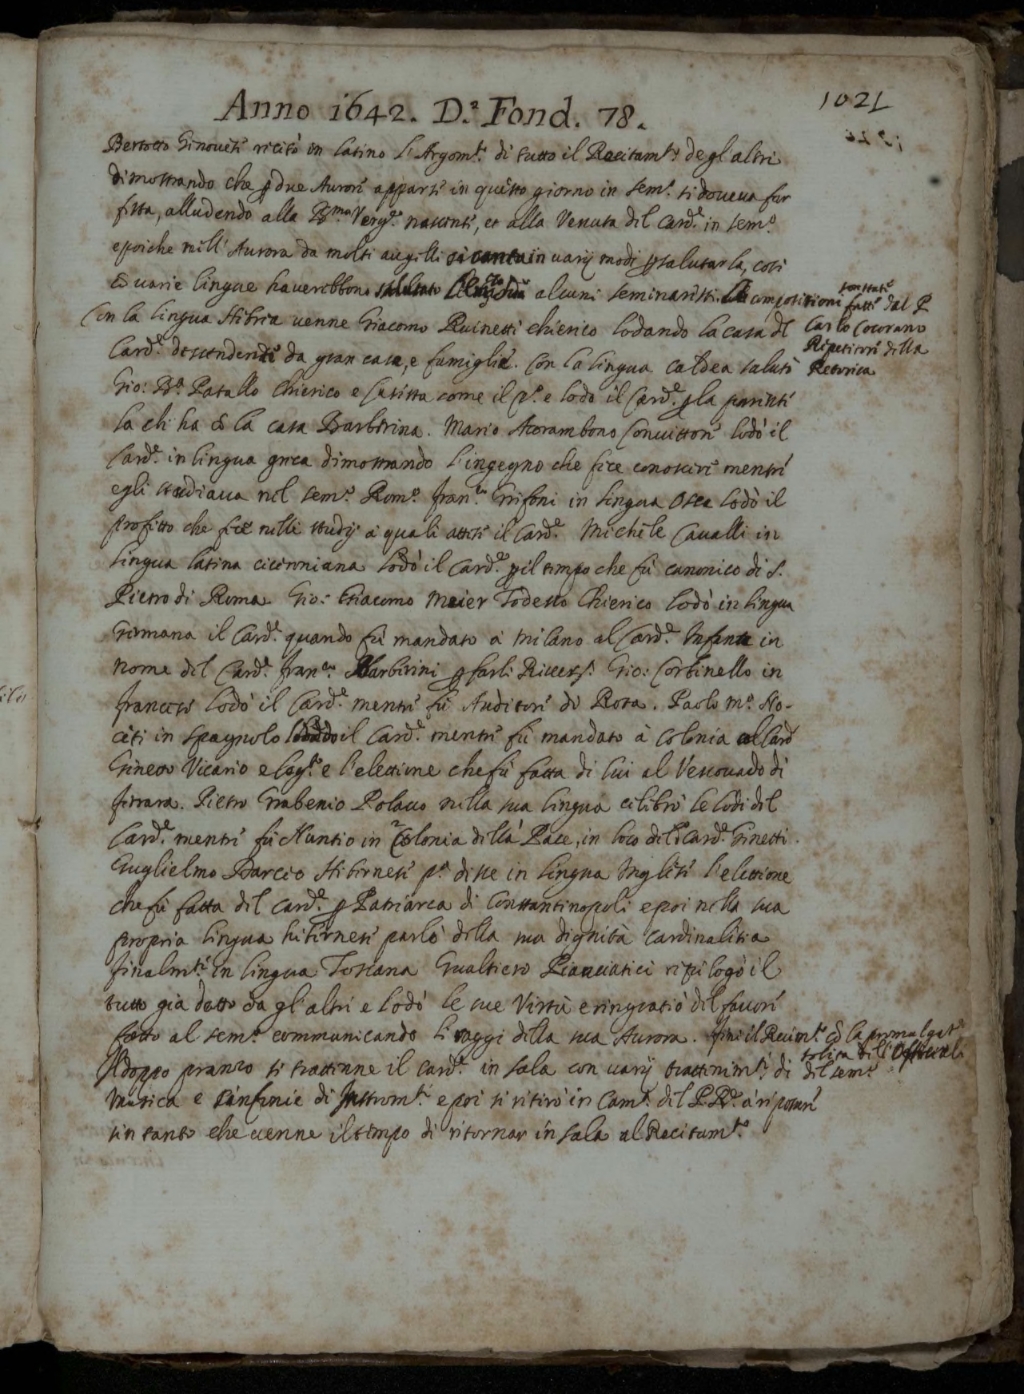 1021
Anno 1642. D.ª Fond. 78.
Bertotto Ginovese recitò in latino l'Argom.to di tutto il Recitam.to degl'altri
dimostrando che p due Aurore apparse in questo giorno in sem.º si doueua far
festa, alludendo alla B.ma Verg.e nascente, et alla Venuta del Card.e in sem.º
e poiche nell'Aurora da molti augelli si canta in varij modi p salutarla, cosi
in varie lingue haverebbono salutato alcuni seminaristi. Le compositioni son state fatte dal P
Carlo Cocorano
Repetitore della
Retorica
Con la lingua Hebrea uenne Giacomo Ruinetti chierico lodando la casa del
Card.e descendente da gran case, e famiglie. Con la lingua Caldea salutò
Gio: B.a Patallo Chierico e Cassista come il p.º e lodò il Card.e p la parente
la che ha con la casa Barberina. Mario Acorambono Convittore lodò il
Card.e in lingua greca dimostrando l'ingegno che fece conoscere mentre
egli studiaua nel sem.º Rom.º Fran.co Grifoni in lingua Osca lodò il
profitto che fece nelli studij a quali attese il Card.e Michele Cavalli in
lingua latina ciceroniana lodò il Card.e p il tempo che fù canonico di S.
Pietro di Roma. Gio: Giacomo Meier Todesco Chierico lodò in lingua
Germana il Card.e quando fù mandato à Milano al Card.e Infante in
nome del Card.e Fran.co Barberini p farli Gio: Corbinello in
francese lodò il Card.e mentre fù Auditore di Rota. Paolo M.a No-
ceti in Spagnolo lodò il Card.e mentre fù mandato à Colonia al Card
Ginetto Vicario e Leg.to e l'elettione che fù fatta di lui al Vescouado di
Ferrara. Pietro Grabenio Polacco nella sua lingua celebrò le lodi del
Card.e mentre fù Nuntio in Colonia della Pace, in loco del Card.e Ginetti.
Guglielmo Barcio Hibernese p.ª disse in lingua Inglese l'elettione
che fù fatta del Card.e p Patriarca di Constantinopoli e poi nella sua
propria lingua hibernese parlò della sua dignità Cardinalitia
finalm.te in lingua Toscana Gualtiero Pianciatici repilogò il
tutto già detto da gl'altri e lodò le sue Virtù e ringratiò del fauore
fatto al sem.º communicando li raggi della sua Aurora. finì il Recitam.to con la promulgat.e
solita del'Officiali
del sem.º
Doppo pranzo si trattenne il Card.e in sala con uarij trattenim.ti di
Musica e sinfonie di Instrom.ti e poi si ritirò in Cam.a del P.R.e à riposare
sin tanto che uenne il tempo di ritornar in sala al Recitam.to